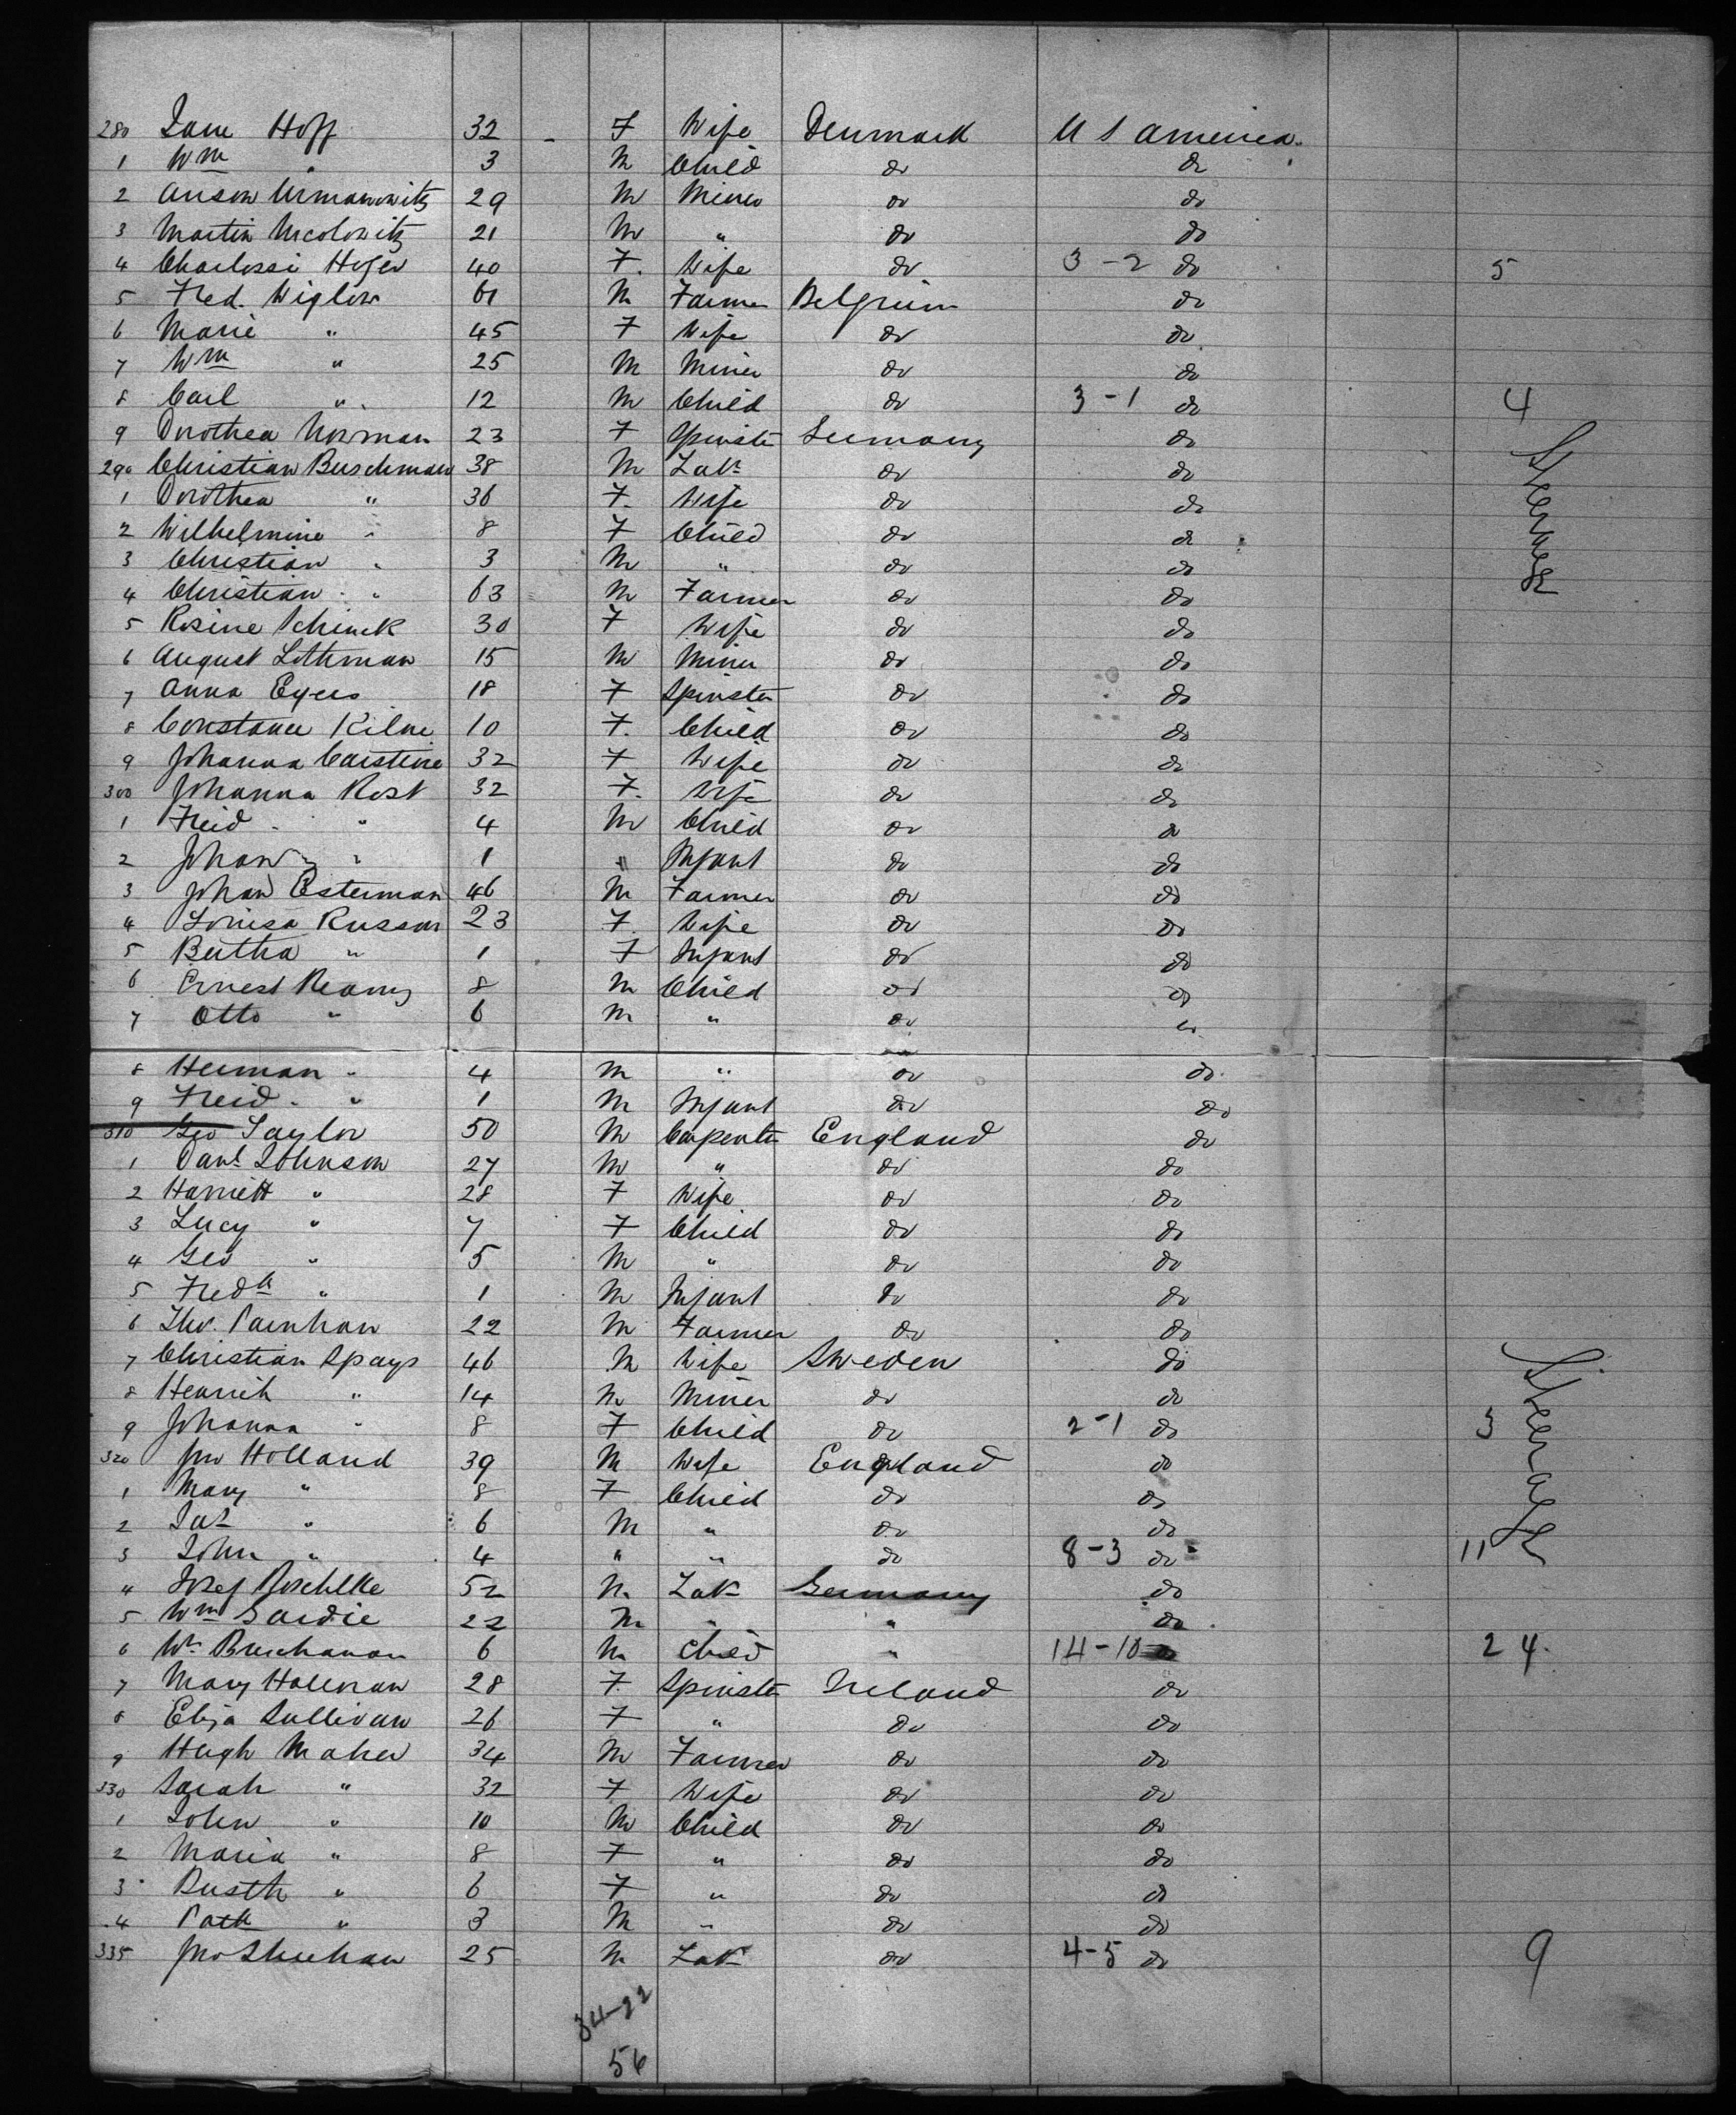 280 Jane Hoff 32 - F Wife Denmark U S America
1 Wm " 3 M Child do do
2 Anson Urmanowitz 29 M Miner do do
3 Martin 21 M " do do
4 Hofer 40 F. Wife do 3-2 do 5
5 Fred. Wiglow 61 M Farmer Belgium do
6 Marie " 45 F Wife do do
7 Wm " 25 M Miner do do
8 Carl " 12 M Child do 3-1 do 4
9 Dorothea Norman 23 F Spinster Germany do
290 Christian Buschman 38 M Labr do do
1 Dorothea " 36 F. Wife do do
2 Wilhelmine " 8 F Child do do
3 Christian " 3 M " do do
4 Christian " 63 M Farmer do do
5 Rosine Schinck 30 F Wife do do
6 August Lothman 15 M Miner do do
7 Anna Eyers 18 F Spinster do do
8 Constance Kilne 10 F. Child do do
9 Johanna Carstine 32 F Wife do do
300 Johanna Rost 32 F. Wife do do
1 Fried. " 4 M Child do do
2 Johan " 1 " Infant do do
3 Johan Esterman 46 M Farmer do do
4 Louisa Russow 23 F. Wife do do
5 Bertha " 1 F Infant do do
6 Ernest 8 M Child do do
7 Otto " 6 M " do do
8 Herman " 4 M " do do
9 Fried. " 1 M Infant do do
310 Geo Taylor 50 M Carpenter England do
1 Danl Johnson 27 M " do do
2 Harriett " 28 F Wife do do
3 Lucy " 7 F Child do do
4 Geo " 5 M " do do
5 Fredk " 1 M Infant do do
6 Tho. 22 M Farmer do do
7 Christian Spays 46 M Wife Sweden do
8 Henrich " 14 M Miner do do
9 Johanna " 8 F Child do 2-1 do 3
320 Jno Holland 39 M Wife England do
1 Mary " 8 F Child do do
2 Jas " 6 M " do do
3 John " 4 " " do 8-3 do 11
4 Josef 52 M Lab Germany do
5 Wm Gardie 22 M " " do
6 Wm Buchanan 6 M Child " 14-10 24.
7 Mary Holleran 28 F. Spinster Ireland do
8 Eliza Sullivan 26 F " do do
9 Hugh Maher 34 M Farmer do do
330 Sarah " 32 F Wife do do
1 John " 10 M Child do do
2 Maria " 8 F " do do
3 " 6 F " do do
4 Patk " 3 M " do do
335 Jno Sheehan 25 M Lab do 4-5 do 9
Steerage
Steerage
34-22
56